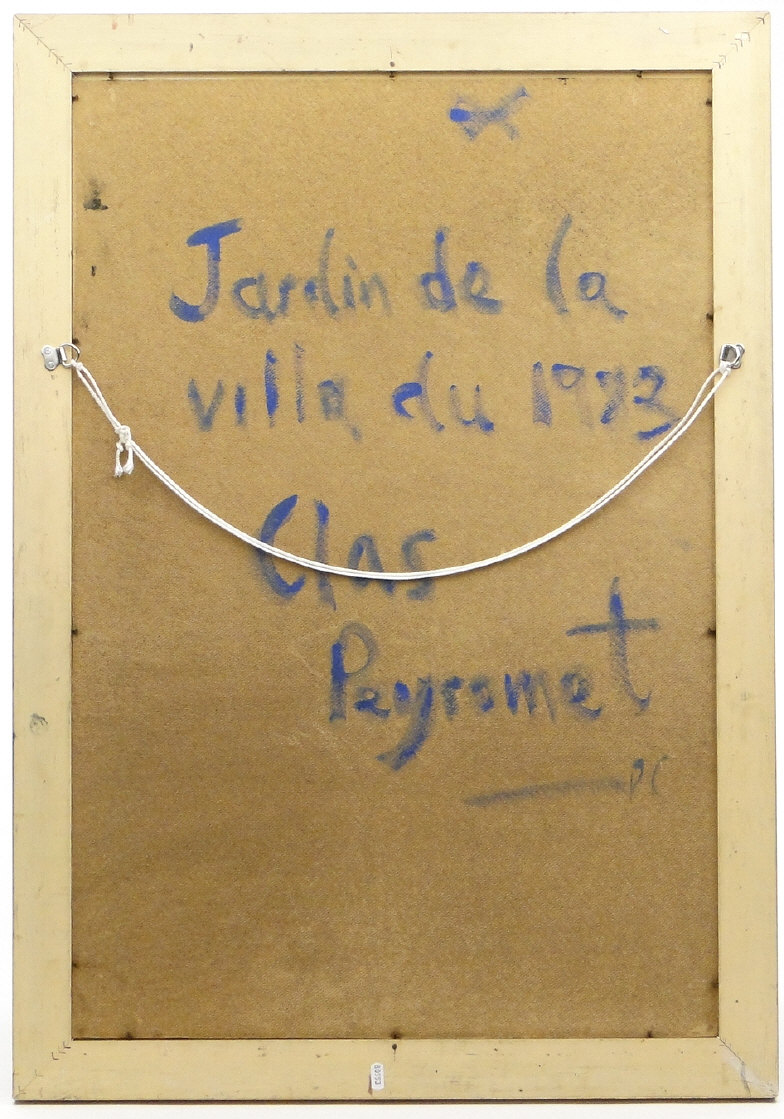 Jardin de la
villa du 1973
Clos
Peyromet